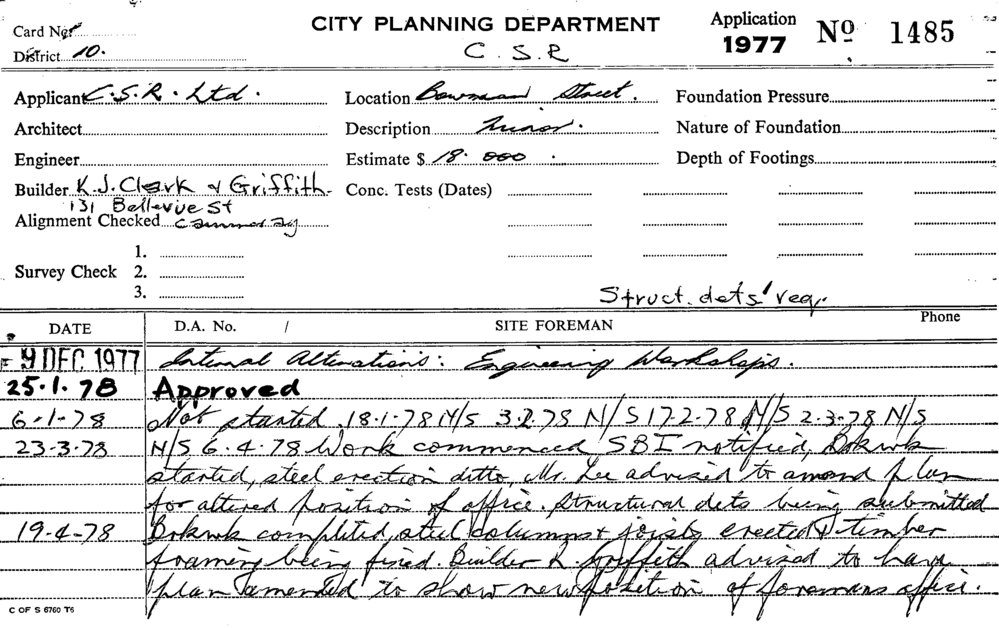 Card No.
CITY PLANNING DEPARTMENT
Application 1977
Nº 1485
District 10.
C. S. R
Applicant C.S.R. Ltd.
Location Bowman Street.
Foundation Pressure
Architect
Description Minor.
Nature of Foundation
Engineer
Estimate $ 18.000.
Depth of Footings
Builder K.J. Clark & Griffith
Conc. Tests (Dates)
131 Bellevue St
Alignment Checked Cammeray
1.
Survey Check 2.
3.
Struct. dets' req.
DATE D.A. No. / SITE FOREMAN Phone
9 DEC 1977 Internal Alterations: Engineering Workshops.
25.1.78 Approved
6-1-78 Not started 18.1.78 N/S 3.2.78 N/S 17.2.78 N/S 2.3.78 N/S
23-3-78 N/S 6.4.78 Work commenced SBI notified, Brkwk
started, steel erection ditto, Mr. Lee advised to amend plan
for altered position of office. Structural dets being submitted
19-4-78 Brkwk completed, steel columns & joists erected & timber
framing being fixed. Builder Griffith advised to have
plan amended to show new position of foremans office.
C OF S 6760 T6